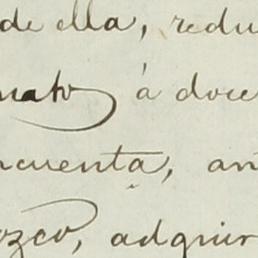 de ella, redu
nato á doce
ncuenta, an
ozco, adquir